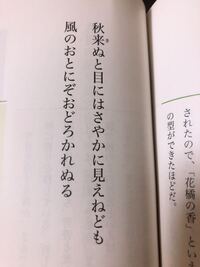 されたので、「花橘の香」とい
の型ができたほどだ。
秋来ぬと目にはさやかに見えねども
風のおとにぞおどろかれぬる